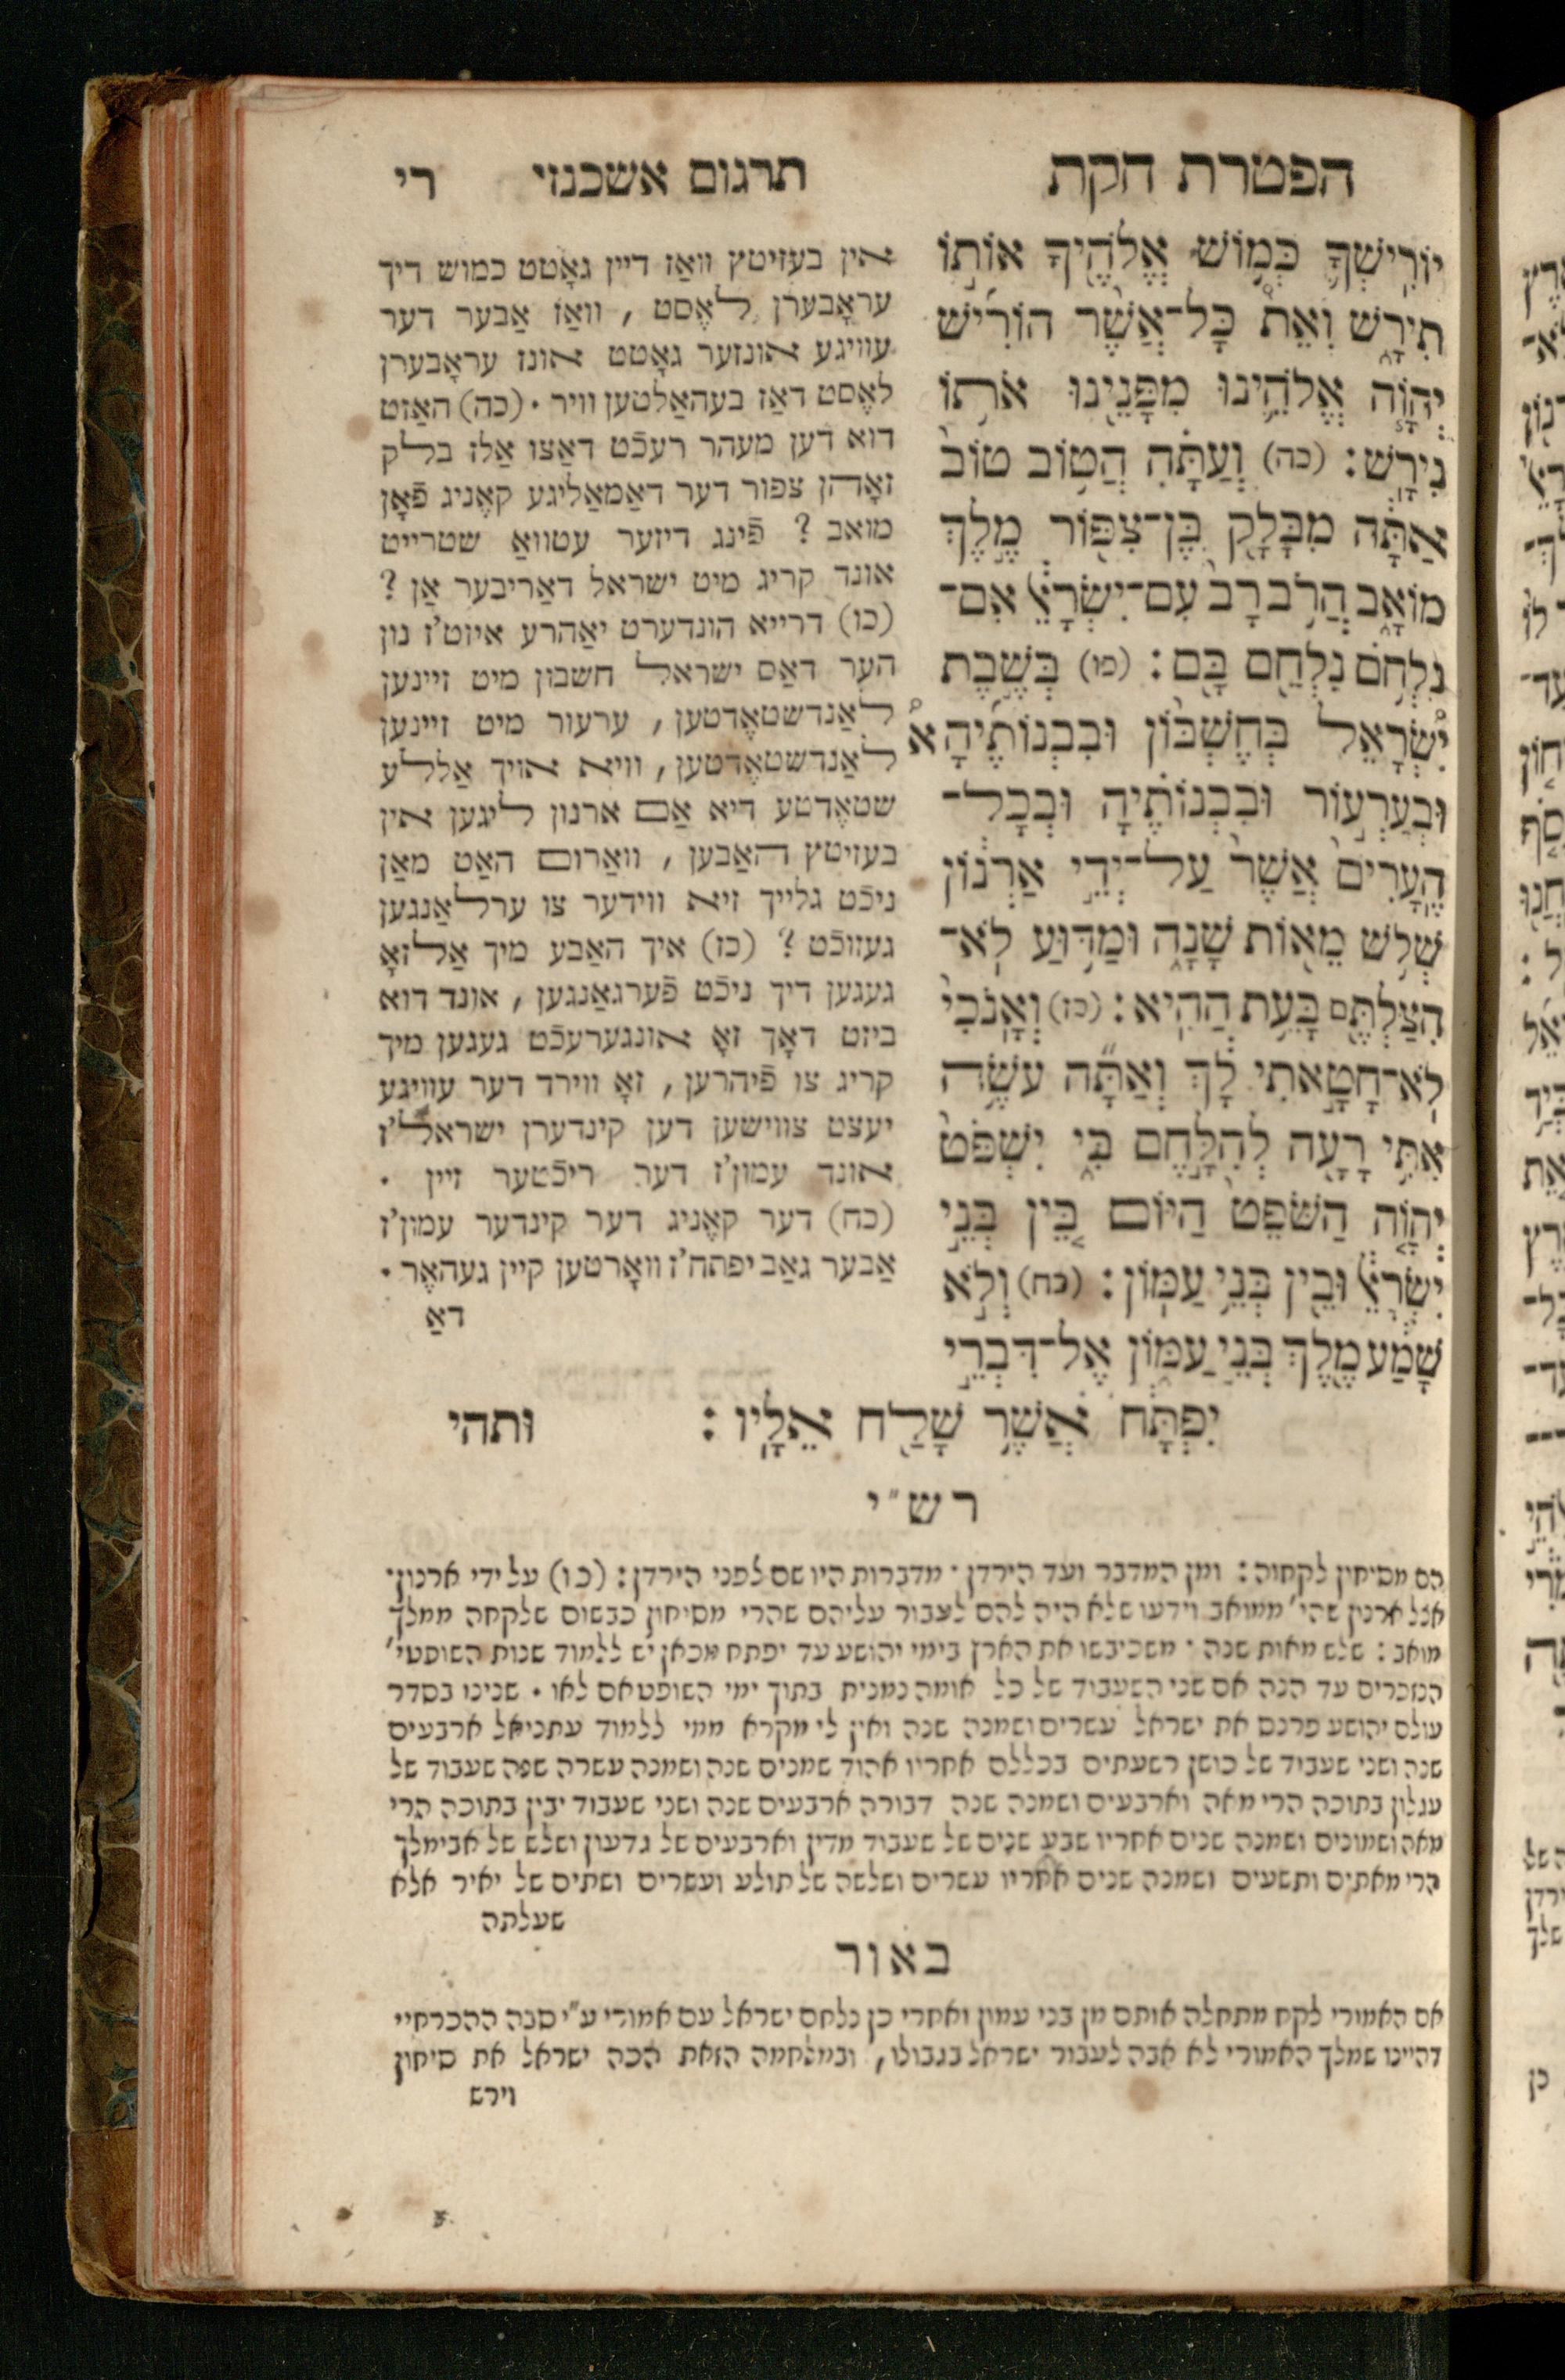 הפטרת חקת
תרגום אשכנזי
רי
יוֹרִישְׁךָ כְּמוֹשׁ אֱלֹהֶיךָ אוֹתוֹ
תִירָשׁ וְאֵת כָּל־אֲשֶׁר הוֹרִישׁ
יְהוָֹה אֱלֹהֵינוּ מִפָּנֵינוּ אֹתוֹ
נִירָשׁ: (כה) וְעַתָּה הֲטוֹב טוֹב
אַתָּה מִבָּלָק בֶּן־צִפּוֹר מֶלֶךְ
מוֹאָב הֲרֹב רָב עִם־יִשְׂרָאֵל אִם־
נִלְחֹם נִלְחַם בָּם: (כו) בְּשֶׁבֶת
יִשְׂרָאֵל בְּחֶשְׁבּוֹן וּבִבְנוֹתֶיהָ א
וּבְעַרְעוֹר וּבִבְנוֹתֶיהָ וּבְכָל־
הֶעָרִים אֲשֶׁר עַל־יְדֵי אַרְנוֹן
שְׁלֹשׁ מֵאוֹת שָׁנָה וּמַדּוּעַ לֹא־
הִצַּלְתֶּם בָּעֵת הַהִיא: (כז) וְאָנֹכִי
לֹא־חָטָאתִי לָךְ וְאַתָּה עֹשֶׂה
אִתִּי רָעָה לְהִלָּחֶם בִּי יִשְׁפֹּט
יְהוָֹה הַשֹּׁפֵט הַיּוֹם בֵּין בְּנֵי
יִשְׂרָאֵל וּבֵין בְּנֵי עַמּוֹן: (כח) וְלֹא
שָׁמַע מֶלֶךְ בְּנֵי עַמּוֹן אֶל־דִּבְרֵי
יִפְתָּח אֲשֶׁר שָׁלַח אֵלָיו:
ותהי
אין בעזיטץ וואַז דיין גאָטט כמוש דיך
עראָבערן לאֶסט, וואַז אַבער דער
עוויגע אונזער גאָטט אונז עראָבערן
לאֶסט דאַז בעהאַלטען וויר. (כה) האַזט
דוא דען מעהר רעכֿט דאַצו אַלז בלק
זאָהן צפור דער דאַמאַליגע קאֶניג פֿאָן
מואב? פֿינג דיזער עטוואַ שטרייט
אונד קריג מיט ישראל דאַריבער אַן?
(כו) דרייא הונדערט יאַהרע איזט'ז נון
הער דאַס ישראל חשבון מיט זיינען
לאַנדשטאֶדטען, ערעור מיט זיינען
לאַנדשטאֶדטען, וויא אויך אַללע
שטאֶדטע דיא אַם ארנון ליגען אין
בעזיטץ האַבען, וואַרום האַט מאַן
ניכֿט גלייך זיא ווידער צו ערלאַנגען
געזוכֿט? (כז) איך האַבע מיך אַלזאָ
געגען דיך ניכֿט פֿערגאַנגען, אונד דוא
ביזט דאָך זאָ אונגערעכֿט געגען מיך
קריג צו פֿיהרען, זאָ ווירד דער עוויגע
יעצט צווישען דען קינדערן ישראל'ז
אונד עמון'ז דער ריכֿטער זיין.
(כח) דער קאֶניג דער קינדער עמון'ז
אַבער גאַב יפתח'ז וואָרטען קיין געהאֶר.
דאַ
רש"י
הם מסיחון לקחוה: ומן המדבר ועד הירדן. מדברות היו שם לפני הירדן: (כו) על ידי ארנון.
אצל ארנון שהי' ממואב וידעו שלא היה להם לצבור עליהם שהרי מסיחון כבשום שלקחה ממלך
מואב: שלש מאות שנה. משכיבשו את הארץ בימי יהושע עד יפתח מכאן יש ללמוד שנות השופטי'
הנזכרים עד הנה אם שני השעבוד של כל אומה נמנית בתוך ימי השופט אם לאו. שנינו בסדר
עולם יהושע פרנס את ישראל עשרים ושמנה שנה ואין לי מקרא ממי ללמוד עתניאל ארבעים
שנה ושני שעבוד של כושן רשעתים בכללם אחריו אהוד שמנים שנה ושמנה עשרה שנה שעבוד של
עגלון בתוכה הרי מאה וארבעים ושמנה שנה דבורה ארבעים שנה ושני שעבוד יבין בתוכה הרי
מאה ושמונים ושמנה שנים אחריו שבע שנים של שעבוד מדין וארבעים של גדעון ושלש של אבימלך
הרי מאתים ותשעים ושמנה שנים אחריו עשרים ושלשה של תולע ועשרים ושתים של יאיר אלא
שעלתה
באור
אם האמורי לקח מתחלה אותם מן בני עמון ואחרי כן נלחם ישראל עם אמורי ע"י סבה ההכרחיי
דהיינו שמלך האמורי לא אבה לעבור ישראל בגבולו, ובמלחמה הזאת הכה ישראל את סיחון
וירש